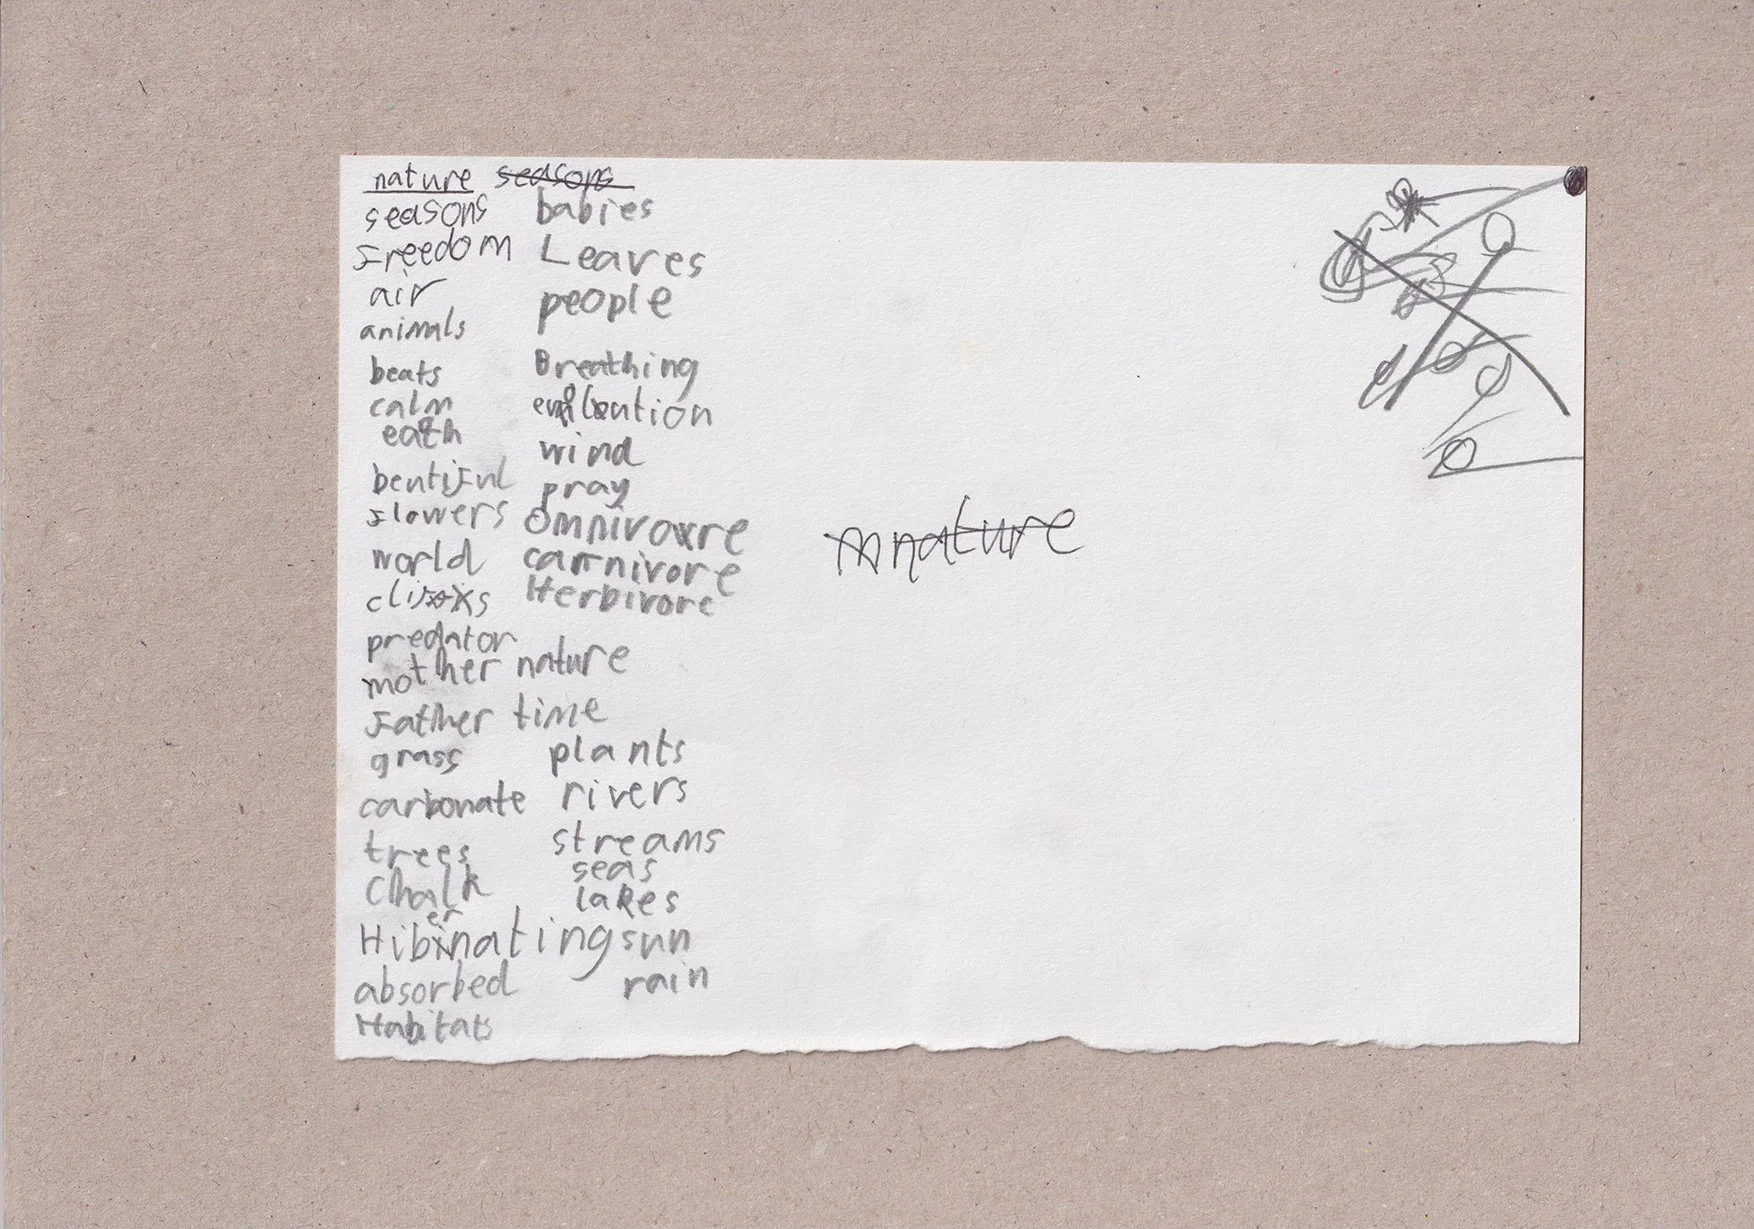 nature seasons
seasons babies
Freedom Leaves
air people
animals
beats Breathing
calm
eath wind
beutiful pray
flowers omnivore
world carnivore
Herbivore
predator
mother nature
Father time
grass plants
carbonate rivers
trees streams
seas
Chalk lakes
Hibernating sun
absorbed rain
Habitats
nature